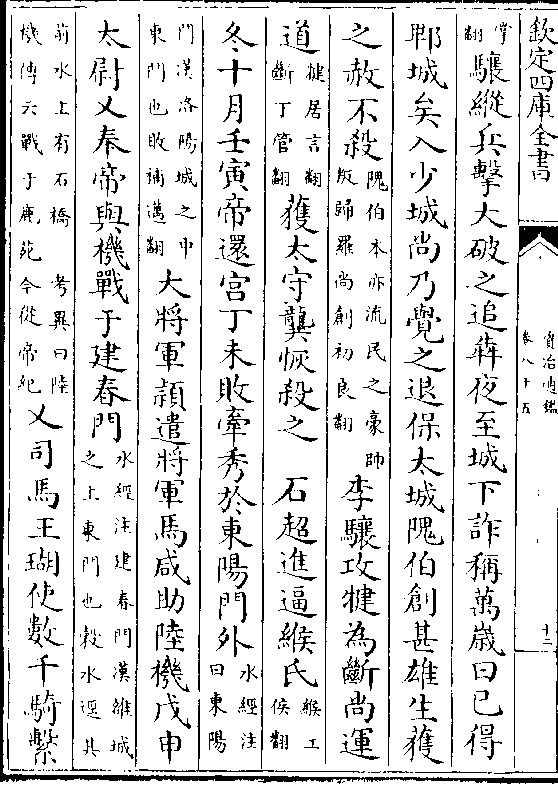 欽定四庫全書
資治通鑑
卷八十五
十三
翻驤縱兵擊大破之追犇夜至城下詐稱萬歲曰已得
郫城矣入少城尚乃覺之退保太城隗伯創甚雄生獲
之赦不殺隗伯本亦流民之豪帥叛歸羅尚創初良翻李驤攻犍為斷尚運
道犍居言翻斷丁管翻獲太守龔恢殺之 石超進逼緱氏緱工侯翻
冬十月壬寅帝還宮丁未敗牽秀於東陽門外水經注曰東陽
門漢洛陽城之中東門也敗補邁翻大將軍穎遣將軍馬咸助陸機戊申
太尉乂奉帝與機戰于建春門水經注建春門漢雒城之上東門也穀水逕其
前水上有石橋 考異曰陸機傳云戰于鹿苑今從帝紀乂司馬王瑚使數千騎繫